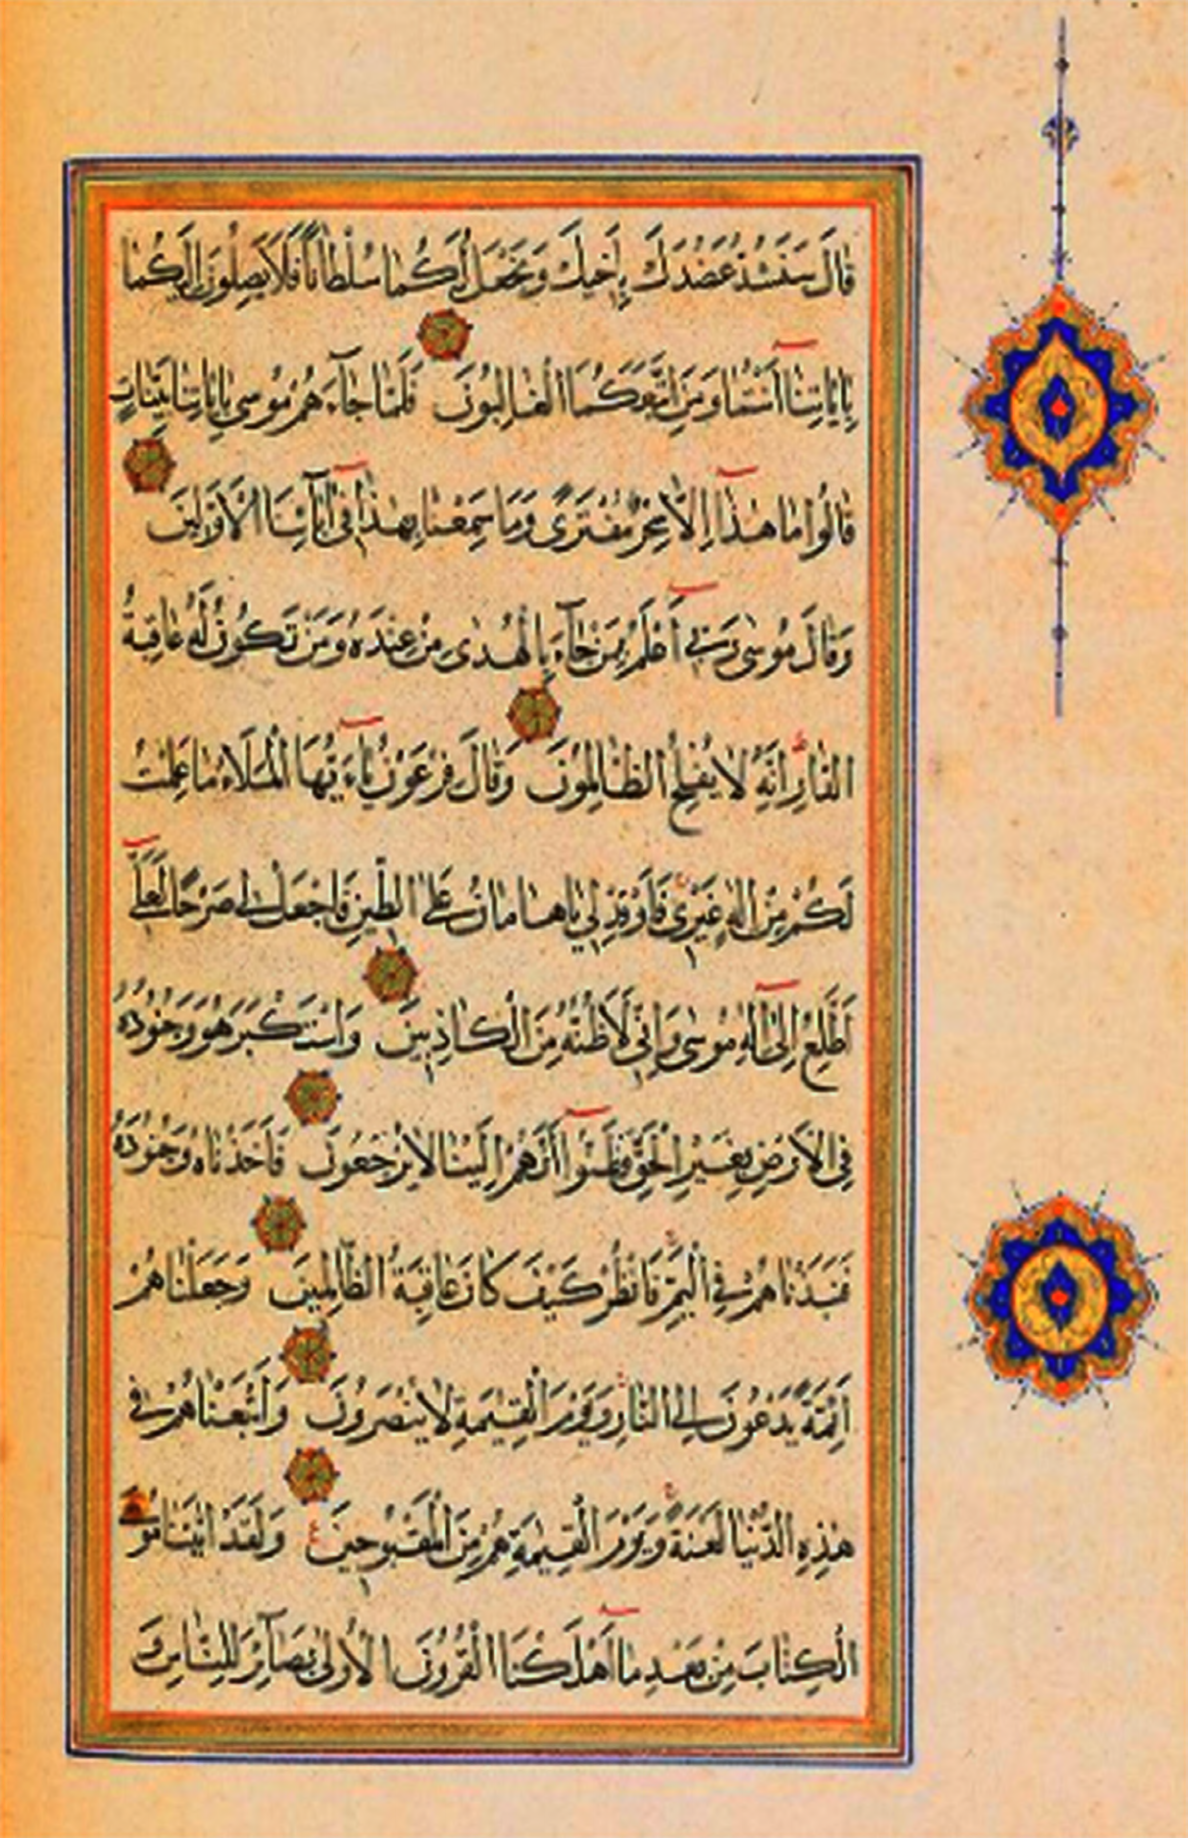 قَالَ سَنَشُدُّ عَضُدَكَ بِاَخيكَ وَنَجْعَلُ لَكُمَا سُلْطَانًا فَلَا يَصِلُونَ اِلَيْكُمَا
بِاٰيَاتِنَا اَنْتُمَا وَمَنِ اتَّبَعَكُمَا الْغَالِبُونَ فَلَمَّا جَآءَهُمْ مُوسٰى بِاٰيَاتِنَا بَيِّنَاتٍ
قَالُوا مَا هٰذَا اِلَّا سِحْرٌ مُفْتَرًى وَمَا سَمِعْنَا بِهٰذَا فِى اٰبَآئِنَا الْاَوَّلينَ
وَقَالَ مُوسٰى رَبّى اَعْلَمُ بِمَنْ جَآءَ بِالْهُدٰى مِنْ عِنْدِهِ وَمَنْ تَكُونُ لَهُ عَاقِبَةُ
الدَّارِ اِنَّهُ لَا يُفْلِحُ الظَّالِمُونَ وَقَالَ فِرْعَوْنُ يَآءَيُّهَا الْمَلَاءُ مَا عَلِمْتُ
لَكُمْ مِنْ اِلٰهٍ غَيْرى فَاَوْقِدْ لى يَا هَامَانُ عَلَى الطّينِ فَاجْعَلْ لى صَرْحًا لَعَلّى
اَطَّلِعُ اِلٰى اِلٰهِ مُوسٰى وَاِنّى لَاَظُنُّهُ مِنَ الْكَاذِبينَ وَاسْتَكْبَرَ هُوَ وَجُنُودُهُ
فِى الْاَرْضِ بِغَيْرِ الْحَقِّ وَظَنُّوا اَنَّهُمْ اِلَيْنَا لَا يُرْجَعُونَ فَاَخَذْنَاهُ وَجُنُودَهُ
فَنَبَذْنَاهُمْ فِى الْيَمِّ فَانْظُرْ كَيْفَ كَانَ عَاقِبَةُ الظَّالِمينَ وَجَعَلْنَاهُمْ
اَئِمَّةً يَدْعُونَ اِلَى النَّارِ وَيَوْمَ الْقِيٰمَةِ لَا يُنْصَرُونَ وَاَتْبَعْنَاهُمْ فى
هٰذِهِ الدُّنْيَا لَعْنَةً وَيَوْمَ الْقِيٰمَةِ هُمْ مِنَ الْمَقْبُوحينَ وَلَقَدْ اٰتَيْنَا مُوسَى
الْكِتَابَ مِنْ بَعْدِ مَا اَهْلَكْنَا الْقُرُونَ الْاُولٰى بَصَآئِرَ لِلنَّاسِ وَ